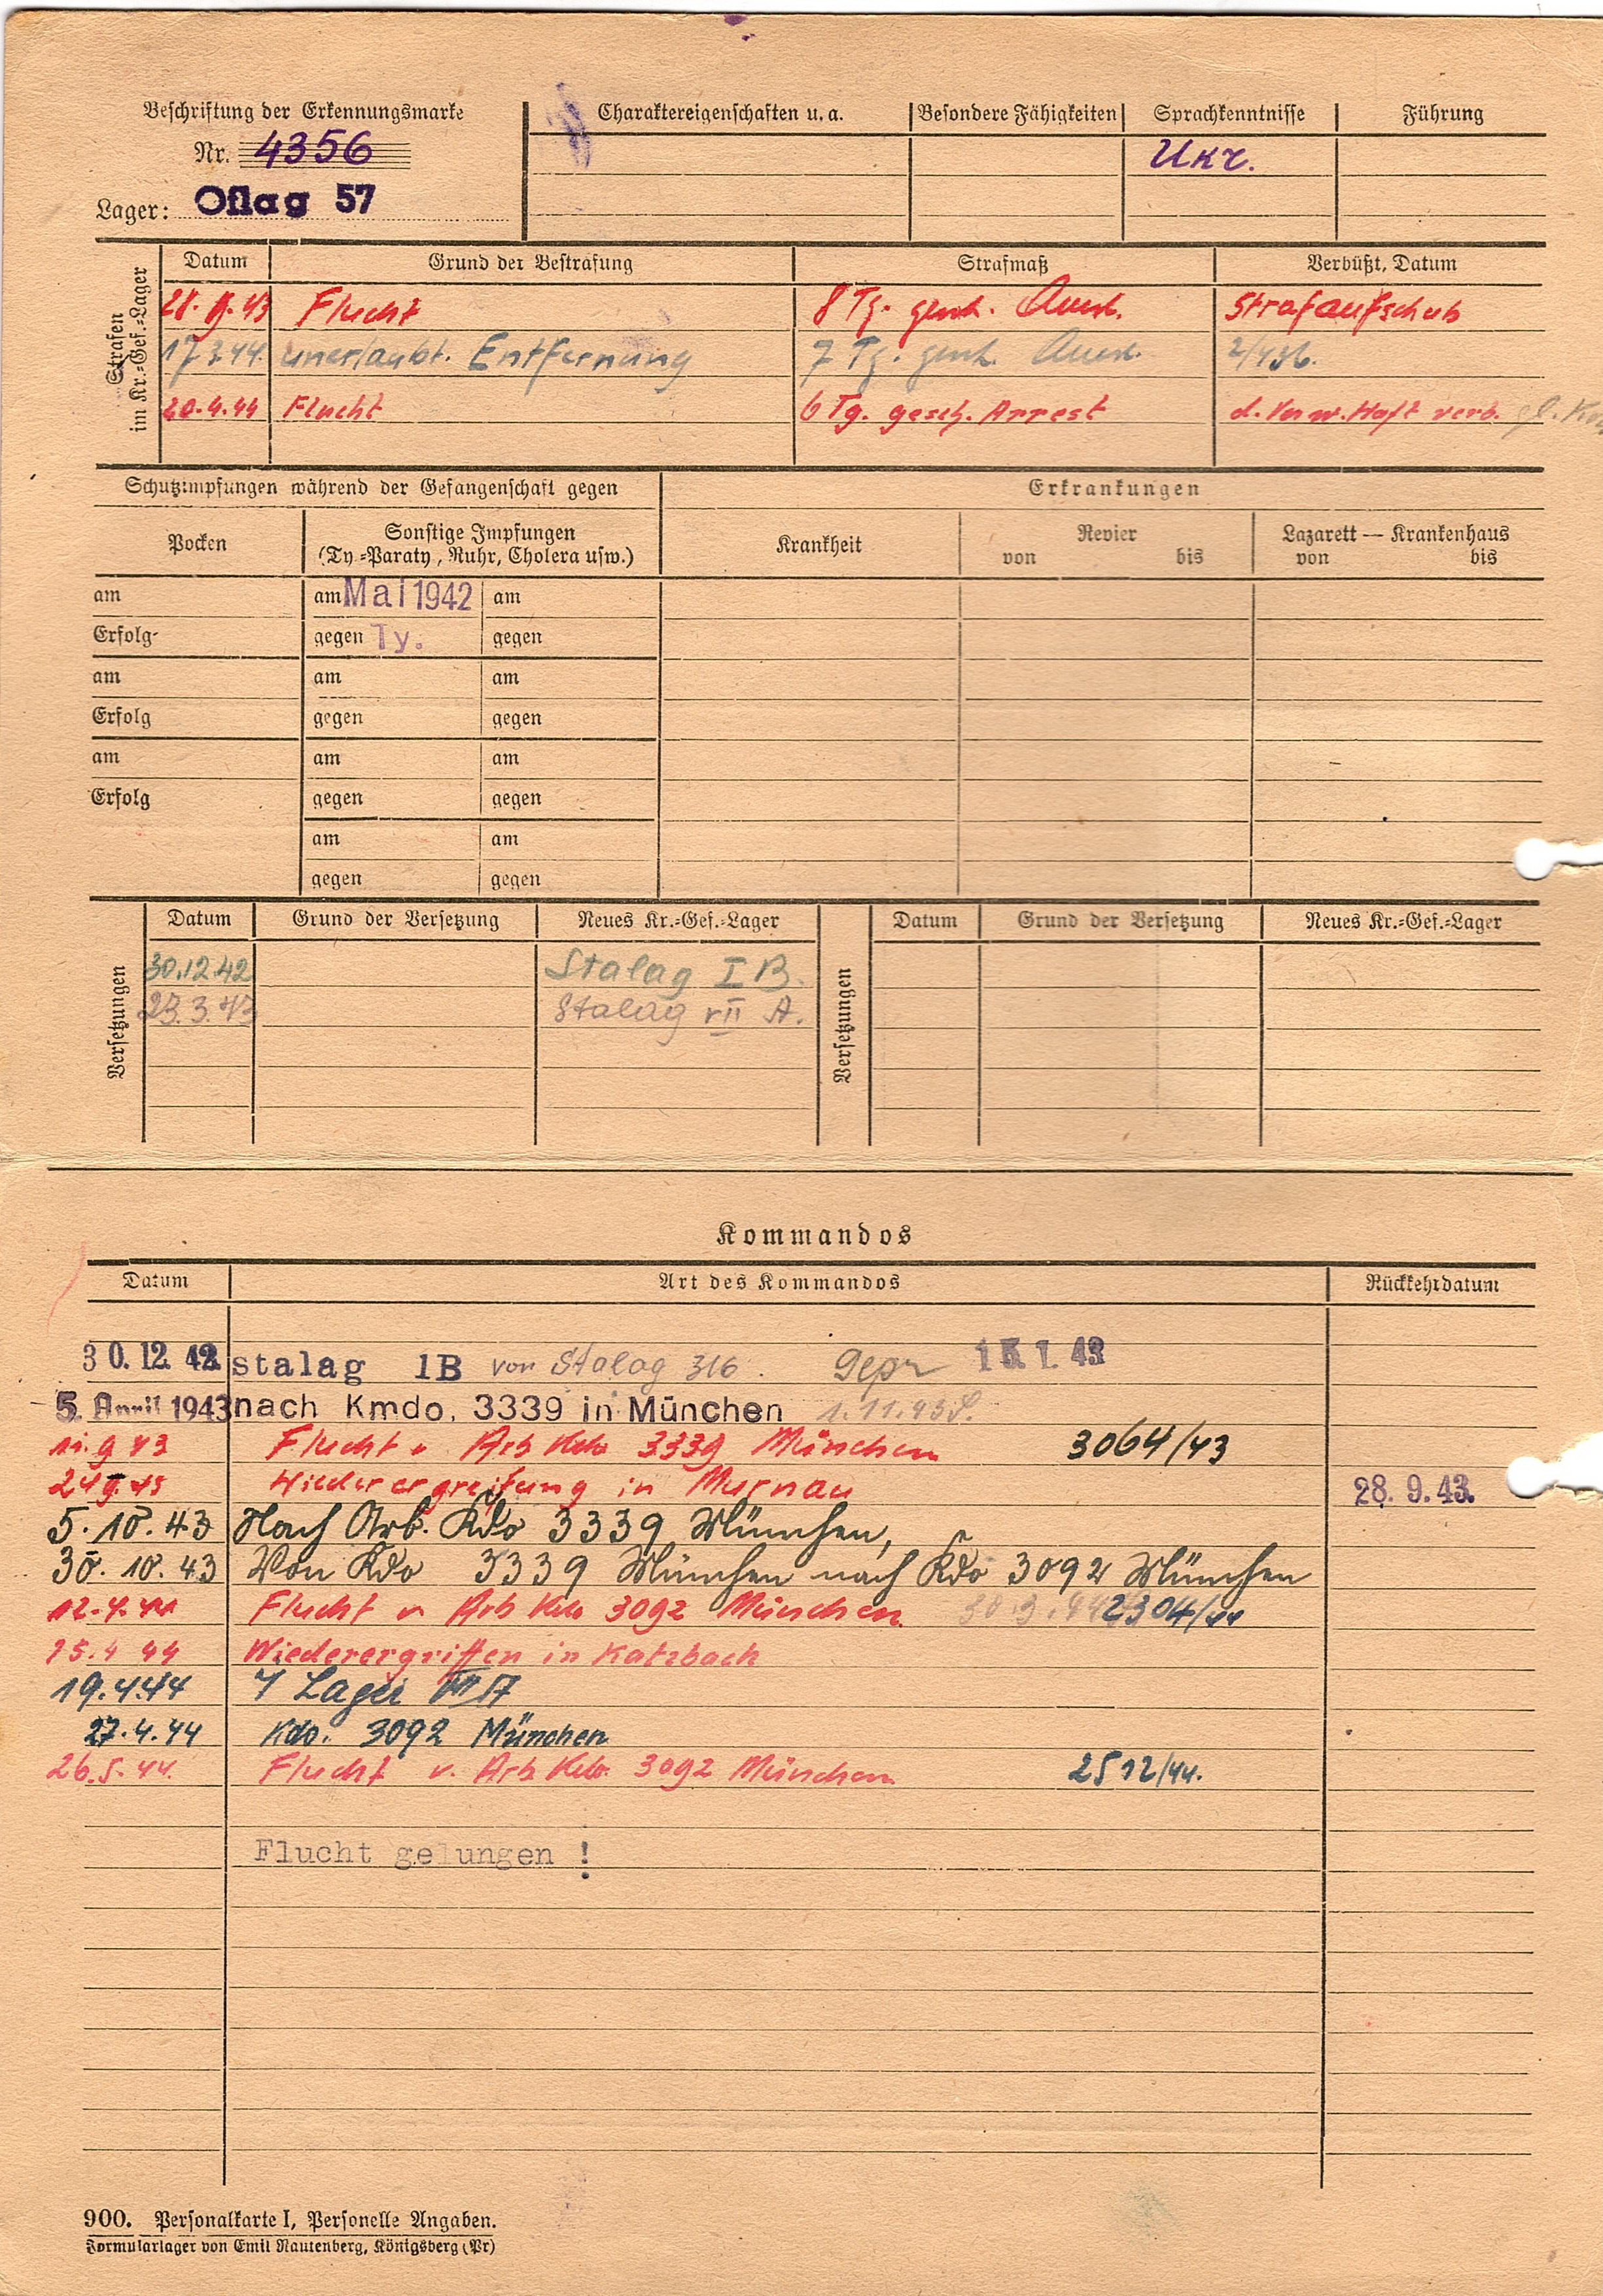 Beschriftung der Erkennungsmarke
Nr. 4356
Lager: Oflag 57
Charaktereigenschaften u. a. Besondere Fähigkeiten Sprachkenntnisse Führung
Ukr.
Strafen im Kr.-Gef.-Lager
Datum Grund der Bestrafung Strafmaß Verbüßt, Datum
28. 9. 43 Flucht 8 Tg. Strafaufschub
17.3.44. unerlaubt. Entfernung 7 Tg.
20.4.44 Flucht 6 Tg. gesch. Arrest d. Verw. Haft verb.
Schutzimpfungen während der Gefangenschaft gegen Erkrankungen
Pocken Sonstige Impfungen Krankheit Revier Lazarett — Krankenhaus
(Ty.-Paraty, Ruhr, Cholera usw.) von bis von bis
am am Mai 1942 am
Erfolg gegen Ty. gegen
am am am
Erfolg gegen gegen
am am am
Erfolg gegen gegen
am am
gegen gegen
Versetzungen
Datum Grund der Versetzung Neues Kr.-Gef.-Lager
30.12.42 Stalag I B.
23.3.43 Stalag VII A.
Versetzungen
Datum Grund der Versetzung Neues Kr.-Gef.-Lager
Kommandos
Datum Art des Kommandos Rückkehrdatum
30. 12. 42 stalag 1B von Stalag 316. Gepr 15. 1. 43
5. April 1943 nach Kmdo. 3339 in München 1.11.43
11. 9 43 Flucht v Arb Kdo 3339 München 3064/43
24 9. 43 Wiederergreifung in Murnau 28. 9. 43.
5. 10. 43 Nach Arb. Kdo 3339 München,
30. 10. 43 Von Kdo 3339 München nach Kdo 3092 München
12. 4. 44 Flucht v Arb Kdo 3092 München. 30.3.44 2304/44
15.4 44 Wiederergriffen in Katzbach
19.4.44 Lager VII A
27.4.44 Kdo. 3092 München
26.5.44. Flucht v. Arb Kdo. 3092 München 2512/44.
Flucht gelungen !
900. Personalkarte I, Personelle Angaben.
Formularlager von Emil Rautenberg, Königsberg (Pr)